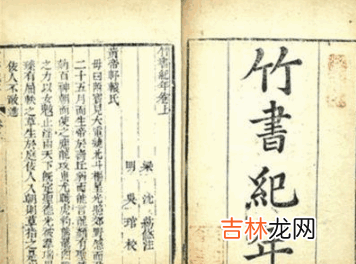 竹書紀年
竹書紀年卷上
梁 沈約附注
明 吳琯校
黃帝軒轅氏
母曰附寶見大電繞北斗樞星光照郊野感而孕
二十五月而生帝於壽丘弱而能言龍顏有聖德
劾百神朝而使之應龍攻蚩尤戰虎豹熊羆四獸
之力以女魃止淫雨天下既定聖德光被群瑞畢
臻有屈軼之草生於庭佞人入朝則草指之是以
佞人不敢進
吉林龙网